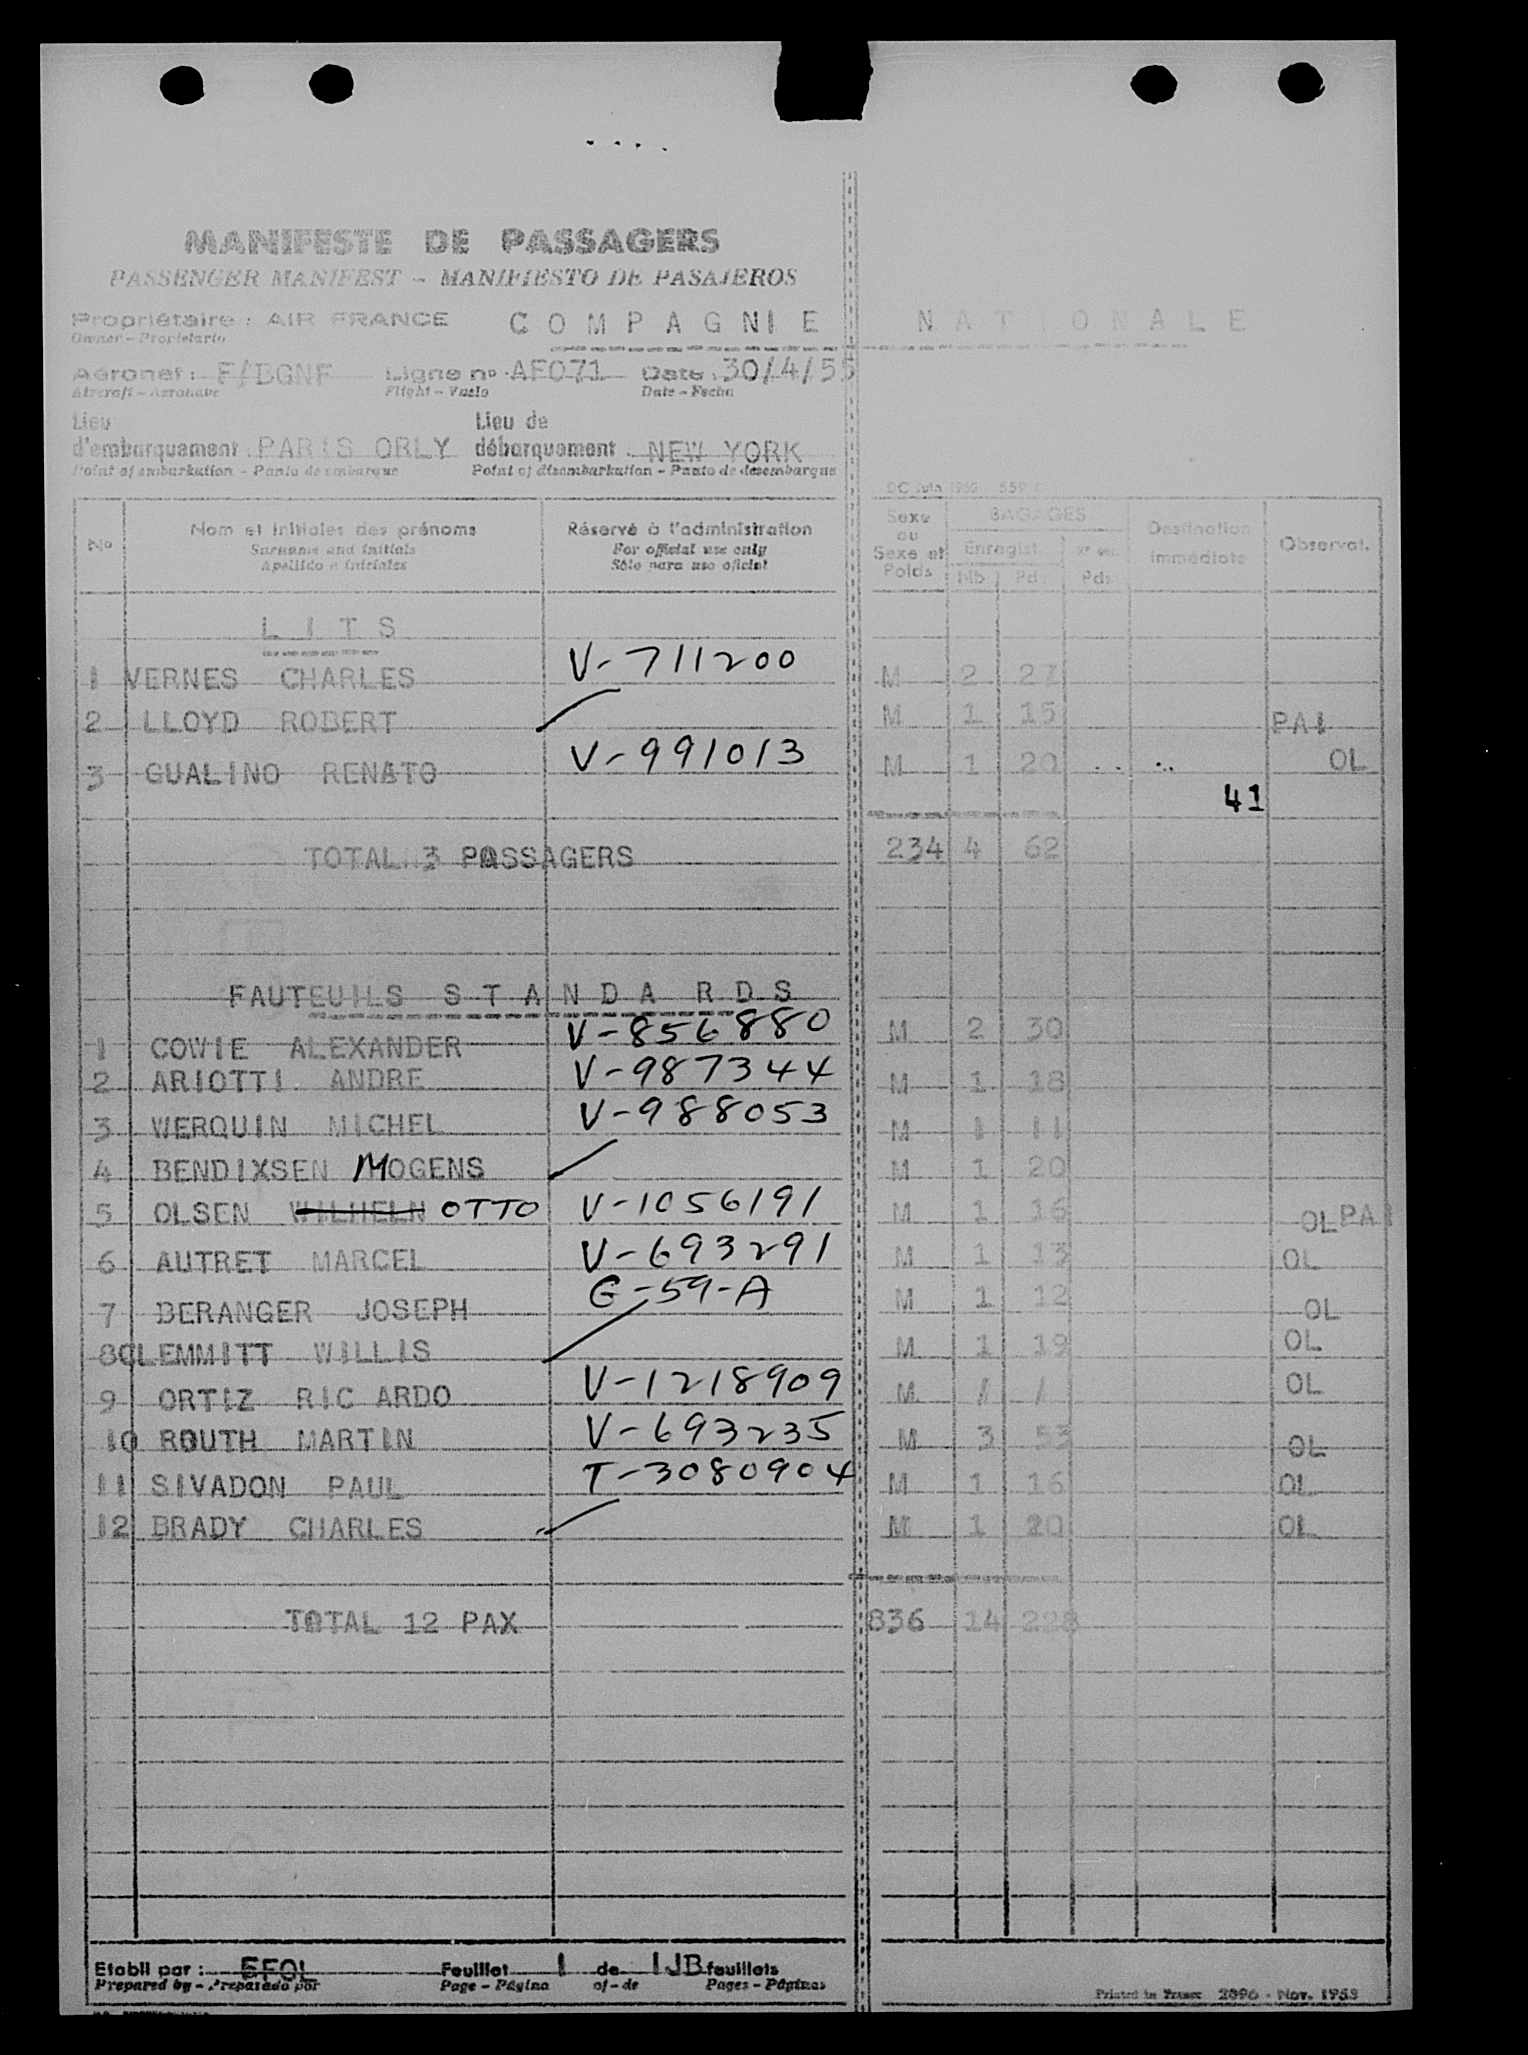 MANIFESTE DE PASSAGERS
PASSENGER MANIFEST - MANIFIESTO DE PASAJEROS
Propriétaire : AIR FRANCE COMPAGNIE NATIONALE
Owner - Propietario
Aéronef : F/BGNF Ligne no AF071 Date : 30/4/55
Aircraft - Aeronave Flight - Vuelo Date - Fecha
Lieu d'embarquement : PARIS ORLY Lieu de débarquement : NEW YORK
Point of embarkation - Punto de embarque Point of disembarkation - Punto de desembarque
No Nom et initiales des prénoms Réservé à l'administration Sexe ou Sexe et Poids BAGAGES Destination immédiate Observat.
Surname and initials For official use only Enregist.
Apellido e iniciales Sólo para uso oficial Nb Pds Pds
LITS
1 VERNES CHARLES V-711200 M 2 27
2 LLOYD ROBERT M 1 15 PAI
3 GUALINO RENATO V-991013 M 1 20 OL
41
TOTAL 3 PASSAGERS 234 4 62
FAUTEUILS STANDARDS
1 COWIE ALEXANDER V-856880 M 2 30
2 ARIOTTI ANDRE V-987344 M 1 18
3 WERQUIN MICHEL V-988053 M 1 11
4 BENDIXSEN MOGENS M 1 20
5 OLSEN WILHELN OTTO V-1056191 M 1 16 OL PAI
6 AUTRET MARCEL V-693291 M 1 13 OL
7 BERANGER JOSEPH G-59-A M 1 12 OL
8 CLEMMITT WILLIS M 1 19 OL
9 ORTIZ RIC ARDO V-1218909 M / / OL
10 ROUTH MARTIN V-693235 M 3 53 OL
11 SIVADON PAUL T-3080904 M 1 16 OL
12 BRADY CHARLES M 1 20 OL
TOTAL 12 PAX 836 14 228
Etabli par : EFOL Feuillet 1 de 1JB feuillets
Prepared by - Preparado por Page - Página of - de Pages - Páginas
Printed in France 2096 - Nov. 1953